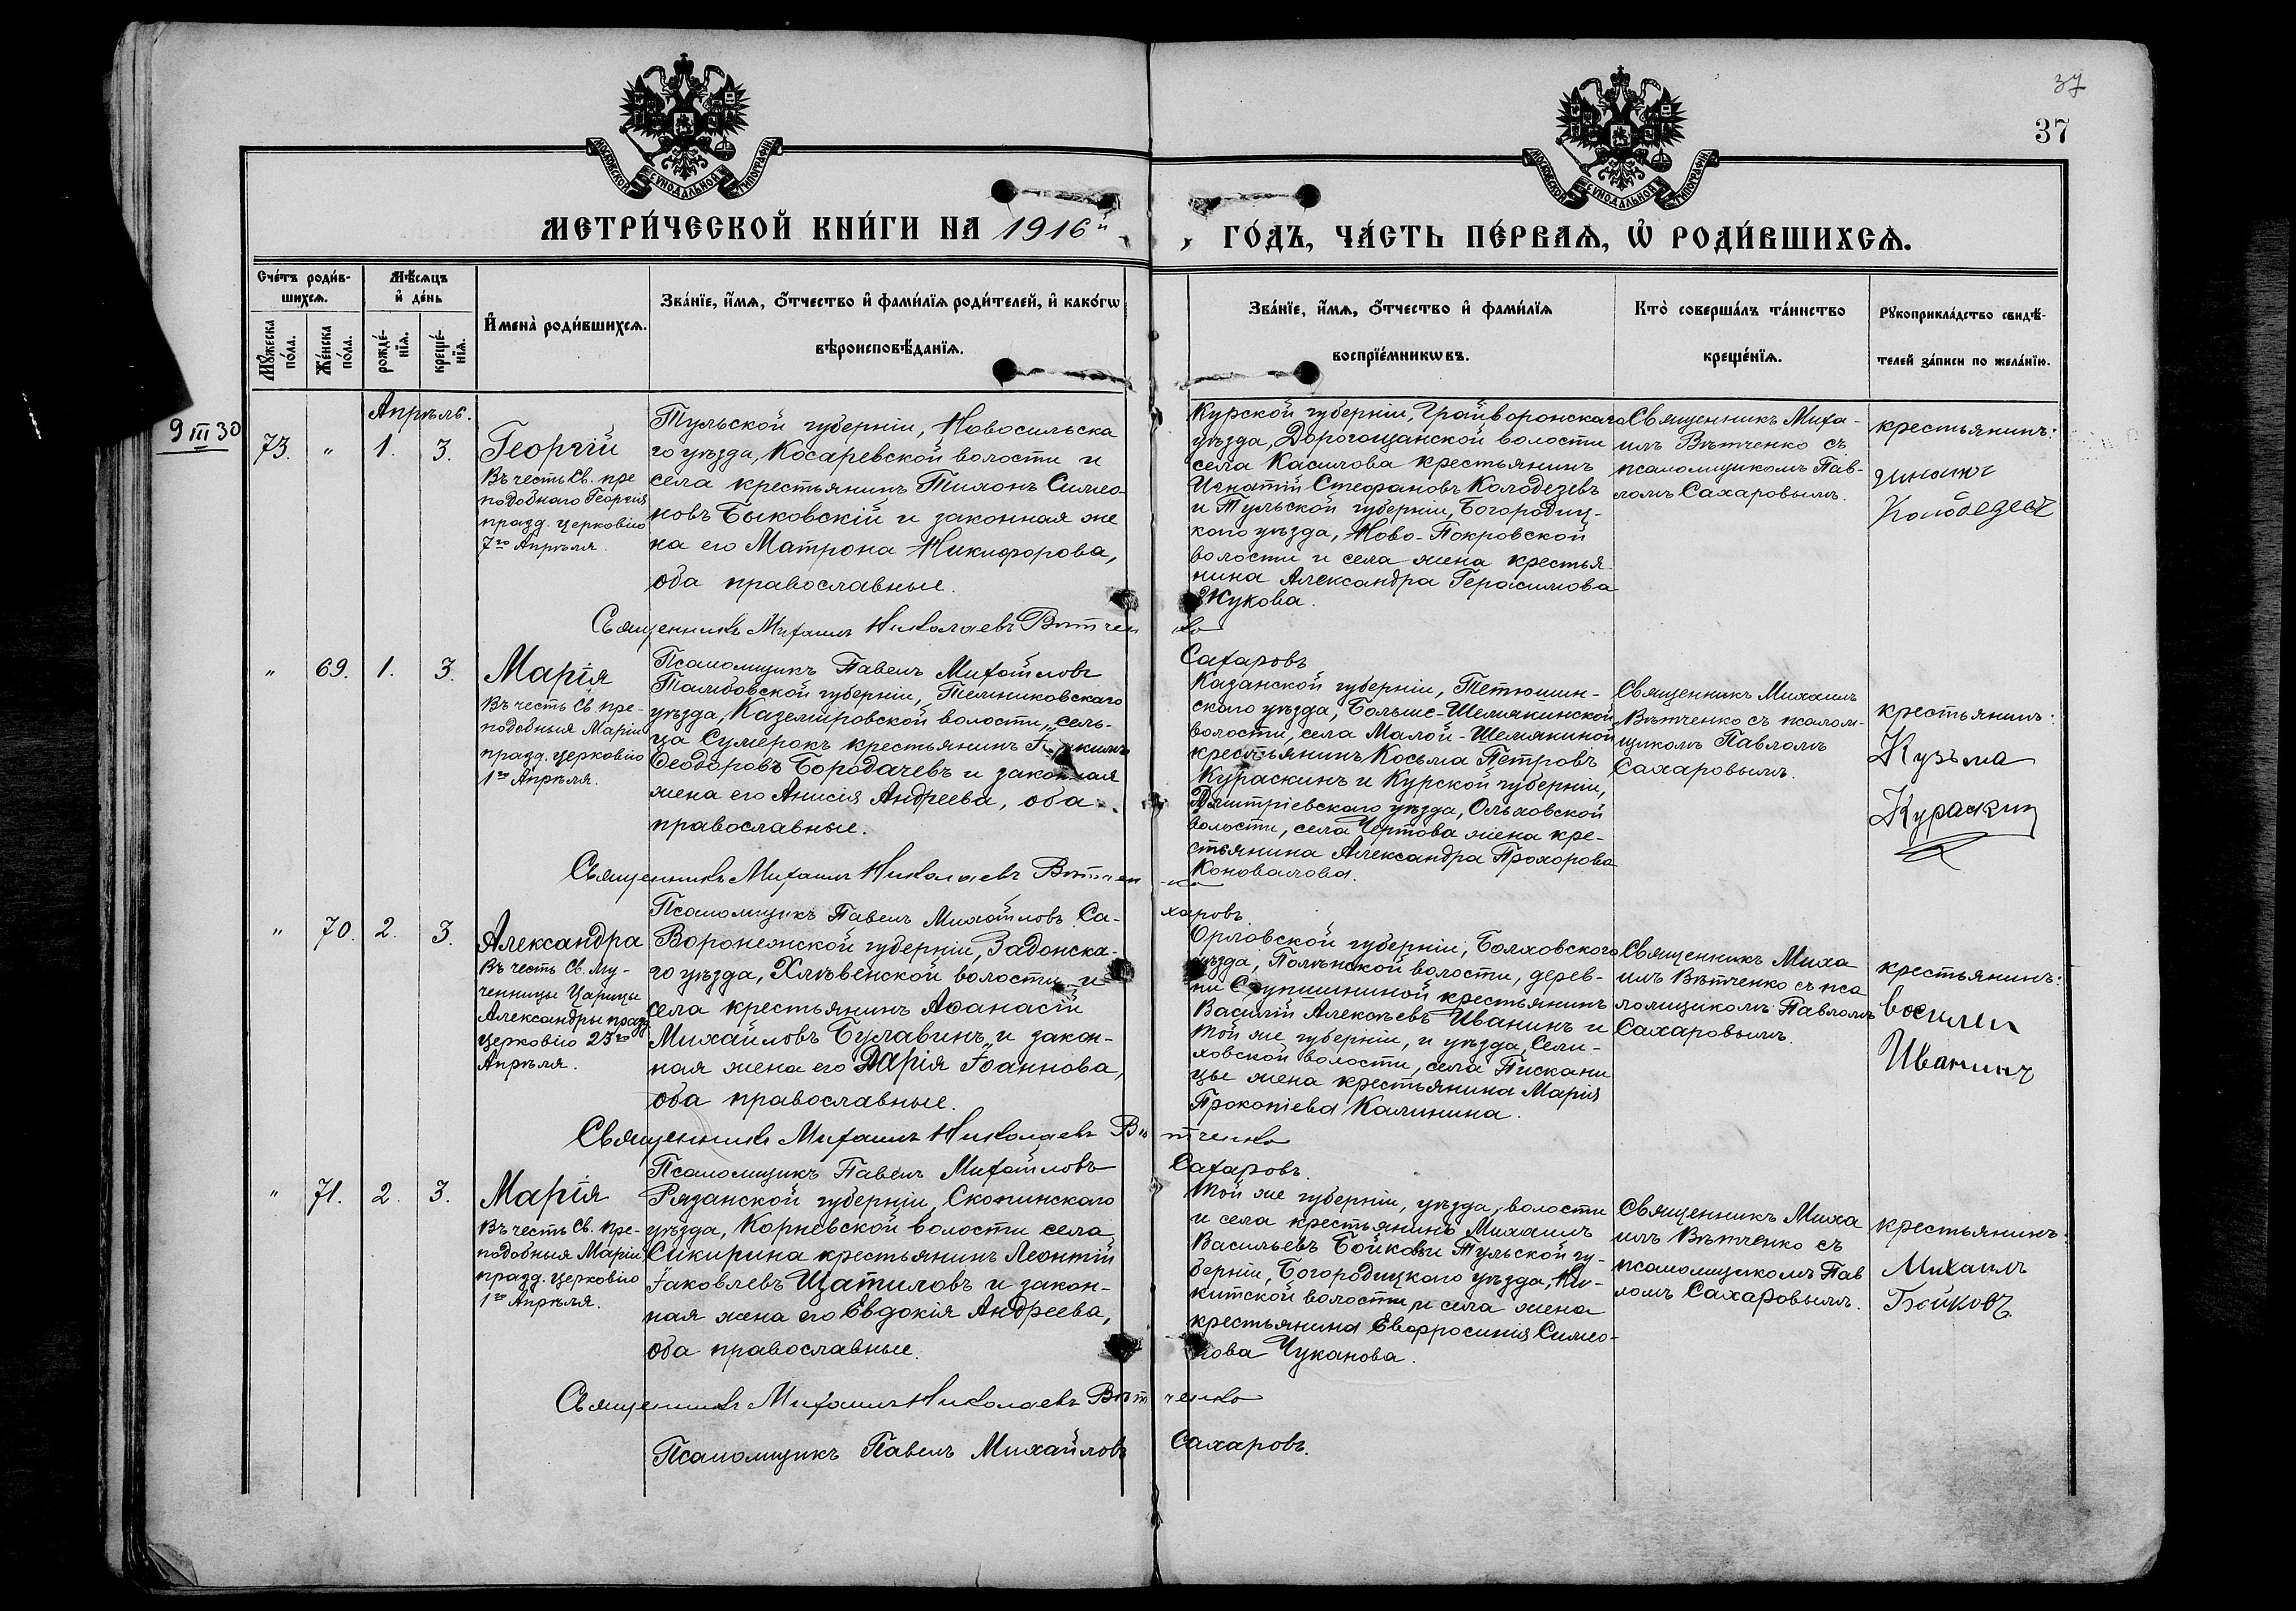 37
37
МОСКОВСКОЙ СѴНОДАЛЬНОЙ ТИПОГРАФІИ
МОСКОВСКОЙ СѴНОДАЛЬНОЙ ТИПОГРАФІИ
МЕТРИ́ЧЕСКОЙ КНИ́ГИ НА 1916й
ГО́ДЪ, ЧА́СТЬ ПЕ́РВАѦ, Ѡ҆ РОДИ́ВШИХСѦ.
Сче́тъ роди́в-
шихсѧ.
Мꙋ́жеска
по́ла.
Же́нска
по́ла.
Мѣ́сѧцъ
и҆ де́нь
рожде́-
нїѧ.
креще́-
нїѧ.
И҆мена̀ роди́вшихсѧ.
Зва́нїе, и҆́мѧ, ѻ҆́тчество и҆ фами́лїѧ роди́телей, и҆ како́гѡ
вѣроисповѣ́данїѧ.
Зва́нїе, и҆́мѧ, ѻ҆́тчество и҆ фами́лїѧ
воспрїе́мникѡвъ.
Кто̀ соверша́лъ та́инство
креще́нїѧ.
Рꙋкоприкла́дство свидѣ́-
телей за́писи по жела́нїю.
9 III 30
Апрѣль.
73. " 1. 3.
Георгій
Въ честь Св. пре
подобнаго Георгія
празд. церковію
7го Апрѣля.
Тульской губерніи, Новосильска
го уѣзда, Косаревской волости и
села крестьянинъ Тихонъ Симео-
новъ Быковскій и законная же
на его Матрона Никифорова,
оба православные.
Курской губерніи, Грайворонскаго
уѣзда, Дорогощанской волости
села Касилова крестьянинъ
Игнатій Стефановъ Колодезевъ
и Тульской губерніи, Богородиц-
кого уѣзда, Ново-Покровской
волости и села жена крестья
нина Александра Герасимова
Жукова.
Священникъ Миха-
илъ Вѣтченко съ
псаломщикомъ Пав-
ломъ Сахаровымъ.
крестьянинъ:
Священникъ Михаилъ Николаевъ Вѣтченко
Псаломщикъ Павелъ Михайловъ Сахаровъ
" 69. 1. 3.
Марія
Въ честь Св. пре-
подобныя Маріи
празд. церковію
1го Апрѣля.
Тамбовской губерніи, Темниковскаго
уѣзда, Каземировской волости, сель-
ца Сумерокъ крестьянинъ
Ѳеодоровъ Бородачевъ и законная
жена его Анисія Андреева, оба
православные.
Казанской губерніи, Тетюшин-
скаго уѣзда, Больше-Шемякинской
волости, села Малой-Шемякиной
крестьянинъ Косьма Петровъ
Кураскинъ и Курской губерніи,
Дмитріевскаго уѣзда, Ольховской
волости, села Чертова жена кре-
стьянина Александра Прохорова
Коновалова.
Священникъ Михаилъ
Вѣтченко съ псалом-
щикомъ Павломъ
Сахаровымъ.
крестьянинъ:
Кузьма
Кураскин
Священникъ Михаилъ Николаевъ Вѣтченко
Псаломщикъ Павелъ Михайловъ Сахаровъ.
" 70. 2. 3.
Александра
Въ честь Св. му-
ченницы Царицы
Александры празд
церковію 23го
Апрѣля.
Воронежской губерніи, Задонска-
го уѣзда, Хлѣвенской волости и
села крестьянинъ Аѳанасій
Михайловъ Булавинъ и закон-
ная жена его Дарія Іоаннова,
оба православные.
Орловской губерніи, Болховского
уѣзда, Полѣнской волости, дерев-
ни крестьянинъ
Василій Алексѣевъ Иванинъ и
той же губерніи, и уѣзда, Сели-
ховской волости, села Пискани
цы жена крестьянина Марія
Прокопіева Калинина.
Священникъ Миха
илъ Вѣтченко съ пса
ломщикомъ Павломъ
Сахаровымъ.
крестьянинъ:
Василеи
Иванинъ
Священникъ Михаилъ Николаевъ Вѣтченко
Псаломщикъ Павелъ Михайловъ Сахаровъ.
" 71. 2. 3.
Марія
Въ честь Св. пре-
подобныя Маріи
празд. церковію
1го Апрѣля.
Рязанской губерніи, Скопинскаго
уѣзда, Корневской волости села
Секирина крестьянинъ Леонтій
Іаковлевъ Щатиловъ и закон-
ная жена его Евдокія Андреева,
оба православные.
той же губерніи, уѣзда, волости
и села крестьянинъ Михаилъ
Васильевъ Бойковъ и Тульской гу-
берніи, Богородицкаго уѣзда, Ни-
китской волости и села жена
крестьянина Евфросинія Симео-
нова Чуканова.
Священникъ Миха
илъ Вѣтченко съ
псаломщикомъ Пав
ломъ Сахаровымъ.
крестьянинъ:
Михаилъ
Бойковъ
Священникъ Михаилъ Николаевъ Вѣтченко
Псаломщикъ Павелъ Михайловъ Сахаровъ.